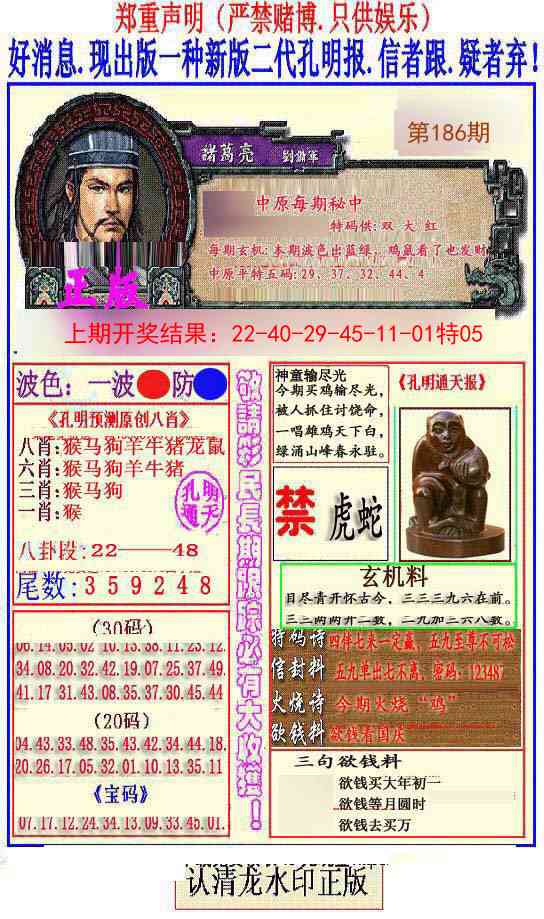 郑重声明（严禁赌博.只供娱乐）
好消息.现出版一种新版二代孔明报.信者跟.疑者弃!
第186期
諸葛亮 劉備軍
中原每期秘中
特码供:双大红
每期玄机:本期波色出蓝绿，鸡鼠看了也发财
中原平特五码:29、37、32、44、4
正版
上期开奖结果：22-40-29-45-11-01特05
波色：一波 防
《孔明预测原创八肖》
八肖:猴马狗羊牛猪龙鼠
六肖:猴马狗羊牛猪
三肖:猴马狗
一肖:猴
孔明
通天
八卦段:22——48
尾数:359248
(30码)
06.14.05.02 10.13.38.11.23.12.
34.08.20.32.42.19.07.25.37.49.
41.17.31.43.08.35.37.30.45.44
(20码)
04.43.33.48.35.43.42.34.44.18.
20.26.17.05.32.01.10.13.35.11
《宝码》
07.17.12.24.34.13.09.33.45.01.
敬請彩民長期跟踪必有大收獲！
神童输尽光
今期买鸡输尽光，
被人抓住讨饶命，
一唱雄鸡天下白，
绿涌山峰春永驻。
《孔明通天报》
禁 虎蛇
玄机料
目尽青开怀古今，三三三九六在前。
三二两两开二数，二九加三六八数。
特码诗 四伴七来一定赢、五九至尊不可松
信封料 五九单出七不离，密码：123487
火烧诗 今期火烧“鸡”
欲钱料 欲钱看国庆
三句欲钱料
欲钱买大年初一
欲钱等月圆时
欲钱去买万
认清龙水印正版